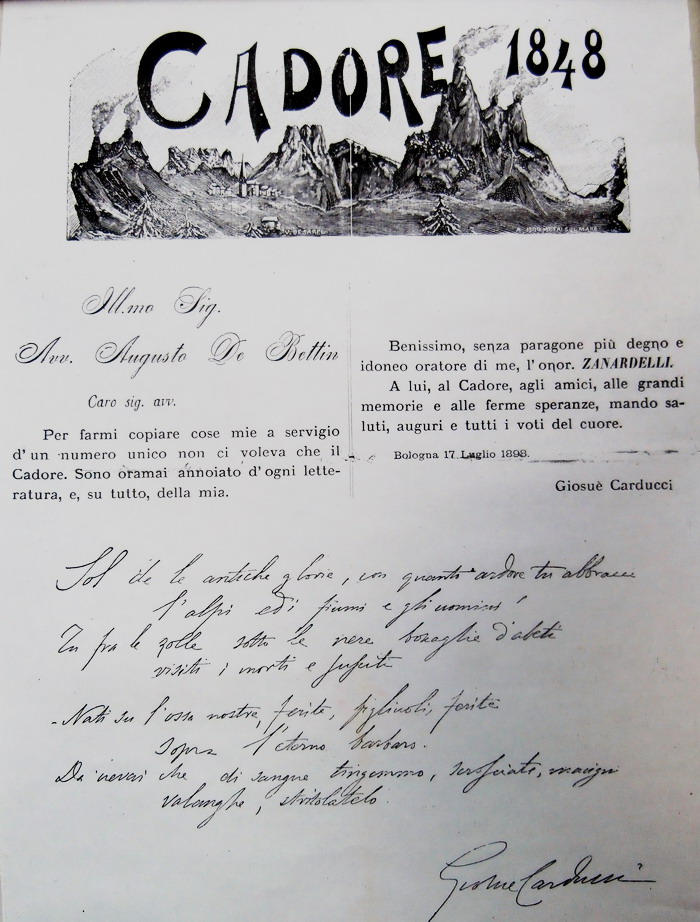 CADORE 1848
Ill.mo Sig.
Avv. Augusto De Bettin
Caro sig. avv.
Per farmi copiare cose mie a servigio
d'un numero unico non ci voleva che il
Cadore. Sono oramai annoiato d'ogni lette-
ratura, e, su tutto, della mia.
Benissimo, senza paragone più degno e
idoneo oratore di me, l'onor. ZANARDELLI.
A lui, al Cadore, agli amici, alle grandi
memorie e alle ferme speranze, mando sa-
luti, auguri e tutti i voti del cuore.
Bologna 17 Luglio 1898.
Giosuè Carducci
Sol de le antiche glorie, con quanto ardore tu abbracci
l'alpi ed i fiumi e gli uomini!
Tu fra le zolle sotto le nere boscaglie d'abeti
visiti i morti e susciti.
- Nati su l'ossa nostre, ferite, figliuoli, ferite
sopra l'eterno barbaro.
Da' nevai che di sangue tingemmo, crosciate, macigni
valanghe, stritolatelo.
Giosue Carducci